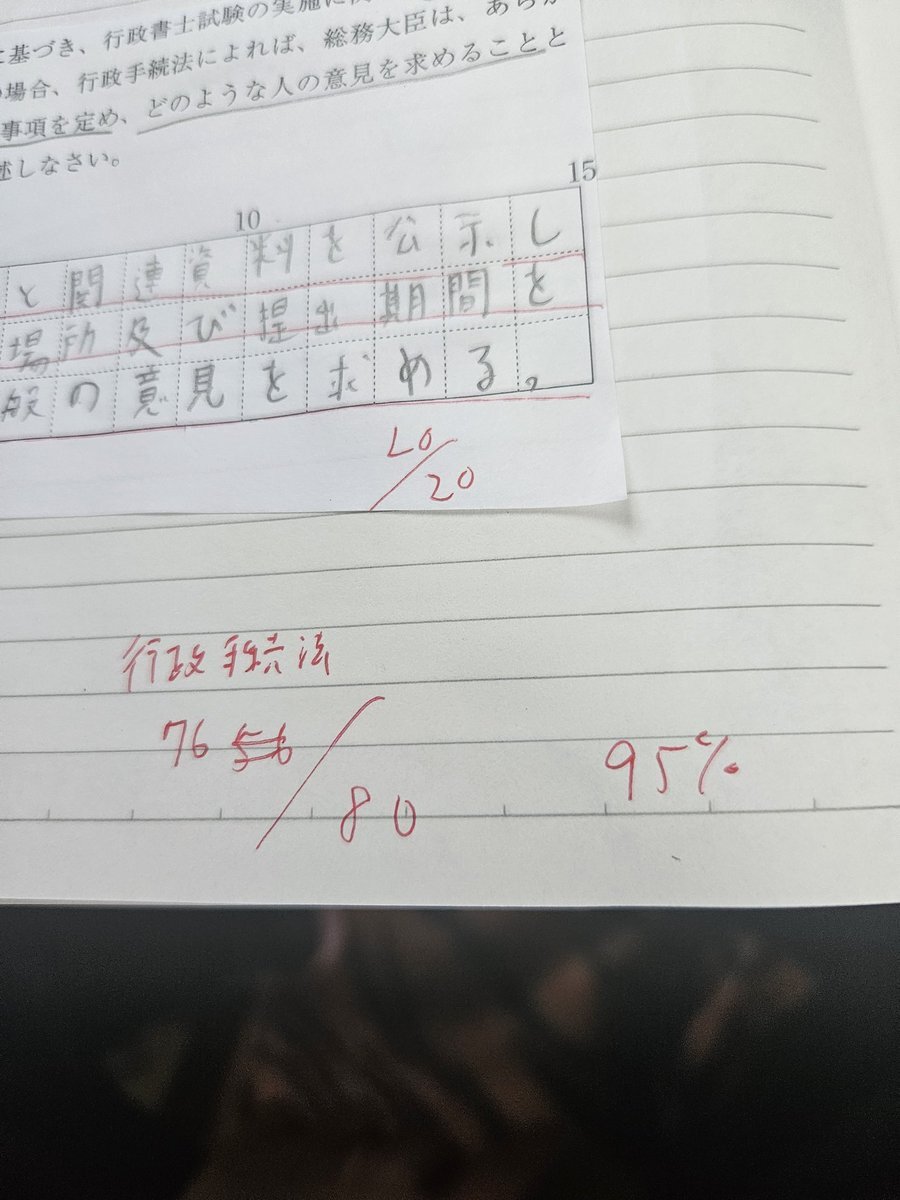 に基づき、行政書士試験の実施に
場合、行政手続法によれば、総務大臣は、あらか
事項を定め、どのような人の意見を求めることと
述しなさい。
10
15
と関連資料を公示し
場所及び提出期間を
般の意見を求める。
20/20
行政手続法
76 56/80
95%